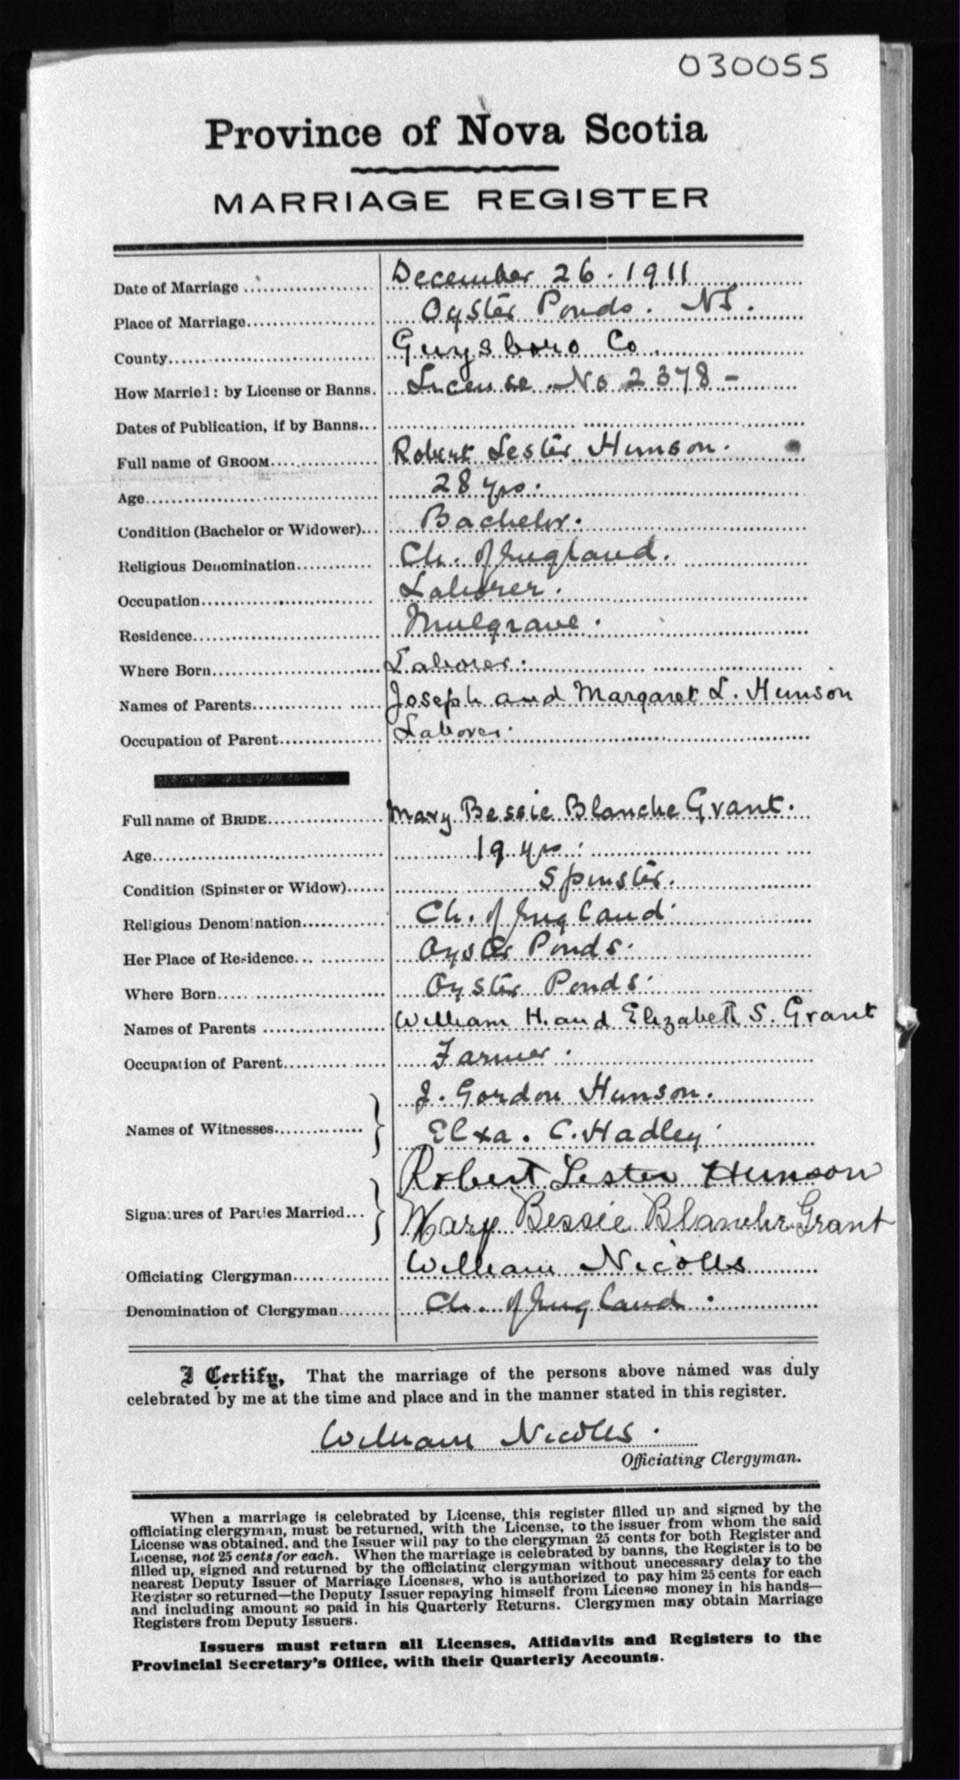 030055
Province of Nova Scotia
MARRIAGE REGISTER
Date of Marriage December 26. 1911
Place of Marriage Oyster Ponds. N.S.
County Guysboro Co
How Married: by License or Banns. License No 2378 -
Dates of Publication, if by Banns
Full name of GROOM Robert Lester Hunson.
Age 28 yrs.
Condition (Bachelor or Widower) Bachelor.
Religious Denomination Ch. of England.
Occupation Laborer.
Residence Mulgrave.
Where Born Laborer.
Names of Parents Joseph and Margaret L. Hunson
Occupation of Parent Laborer.
Full name of BRIDE Mary Bessie Blanche Grant.
Age 19 yrs.
Condition (Spinster or Widow) Spinster.
Religious Denomination Ch. of England.
Her Place of Residence Oyster Ponds.
Where Born Oyster Ponds.
Names of Parents William H. and Elizabeth S. Grant
Occupation of Parent Farmer.
J. Gordon Hunson.
Names of Witnesses
C. Hadley
Robert Lester Hunson
Signatures of Parties Married
Mary Bessie Blanche Grant
Officiating Clergyman William Nicolls
Denomination of Clergyman Ch. of England.
I Certify, That the marriage of the persons above named was duly
celebrated by me at the time and place and in the manner stated in this register.
William Nicolls.
Officiating Clergyman.
When a marriage is celebrated by License, this register filled up and signed by the
officiating clergyman, must be returned, with the License, to the issuer from whom the said
License was obtained, and the Issuer will pay to the clergyman 25 cents for both Register and
License, not 25 cents for each. When the marriage is celebrated by banns, the Register is to be
filled up, signed and returned by the officiating clergyman without unnecessary delay to the
nearest Deputy Issuer of Marriage Licenses, who is authorized to pay him 25 cents for each
Register so returned—the Deputy Issuer repaying himself from License money in his hands—
and including amount so paid in his Quarterly Returns. Clergymen may obtain Marriage
Registers from Deputy Issuers.
Issuers must return all Licenses, Affidavits and Registers to the
Provincial Secretary's Office, with their Quarterly Accounts.